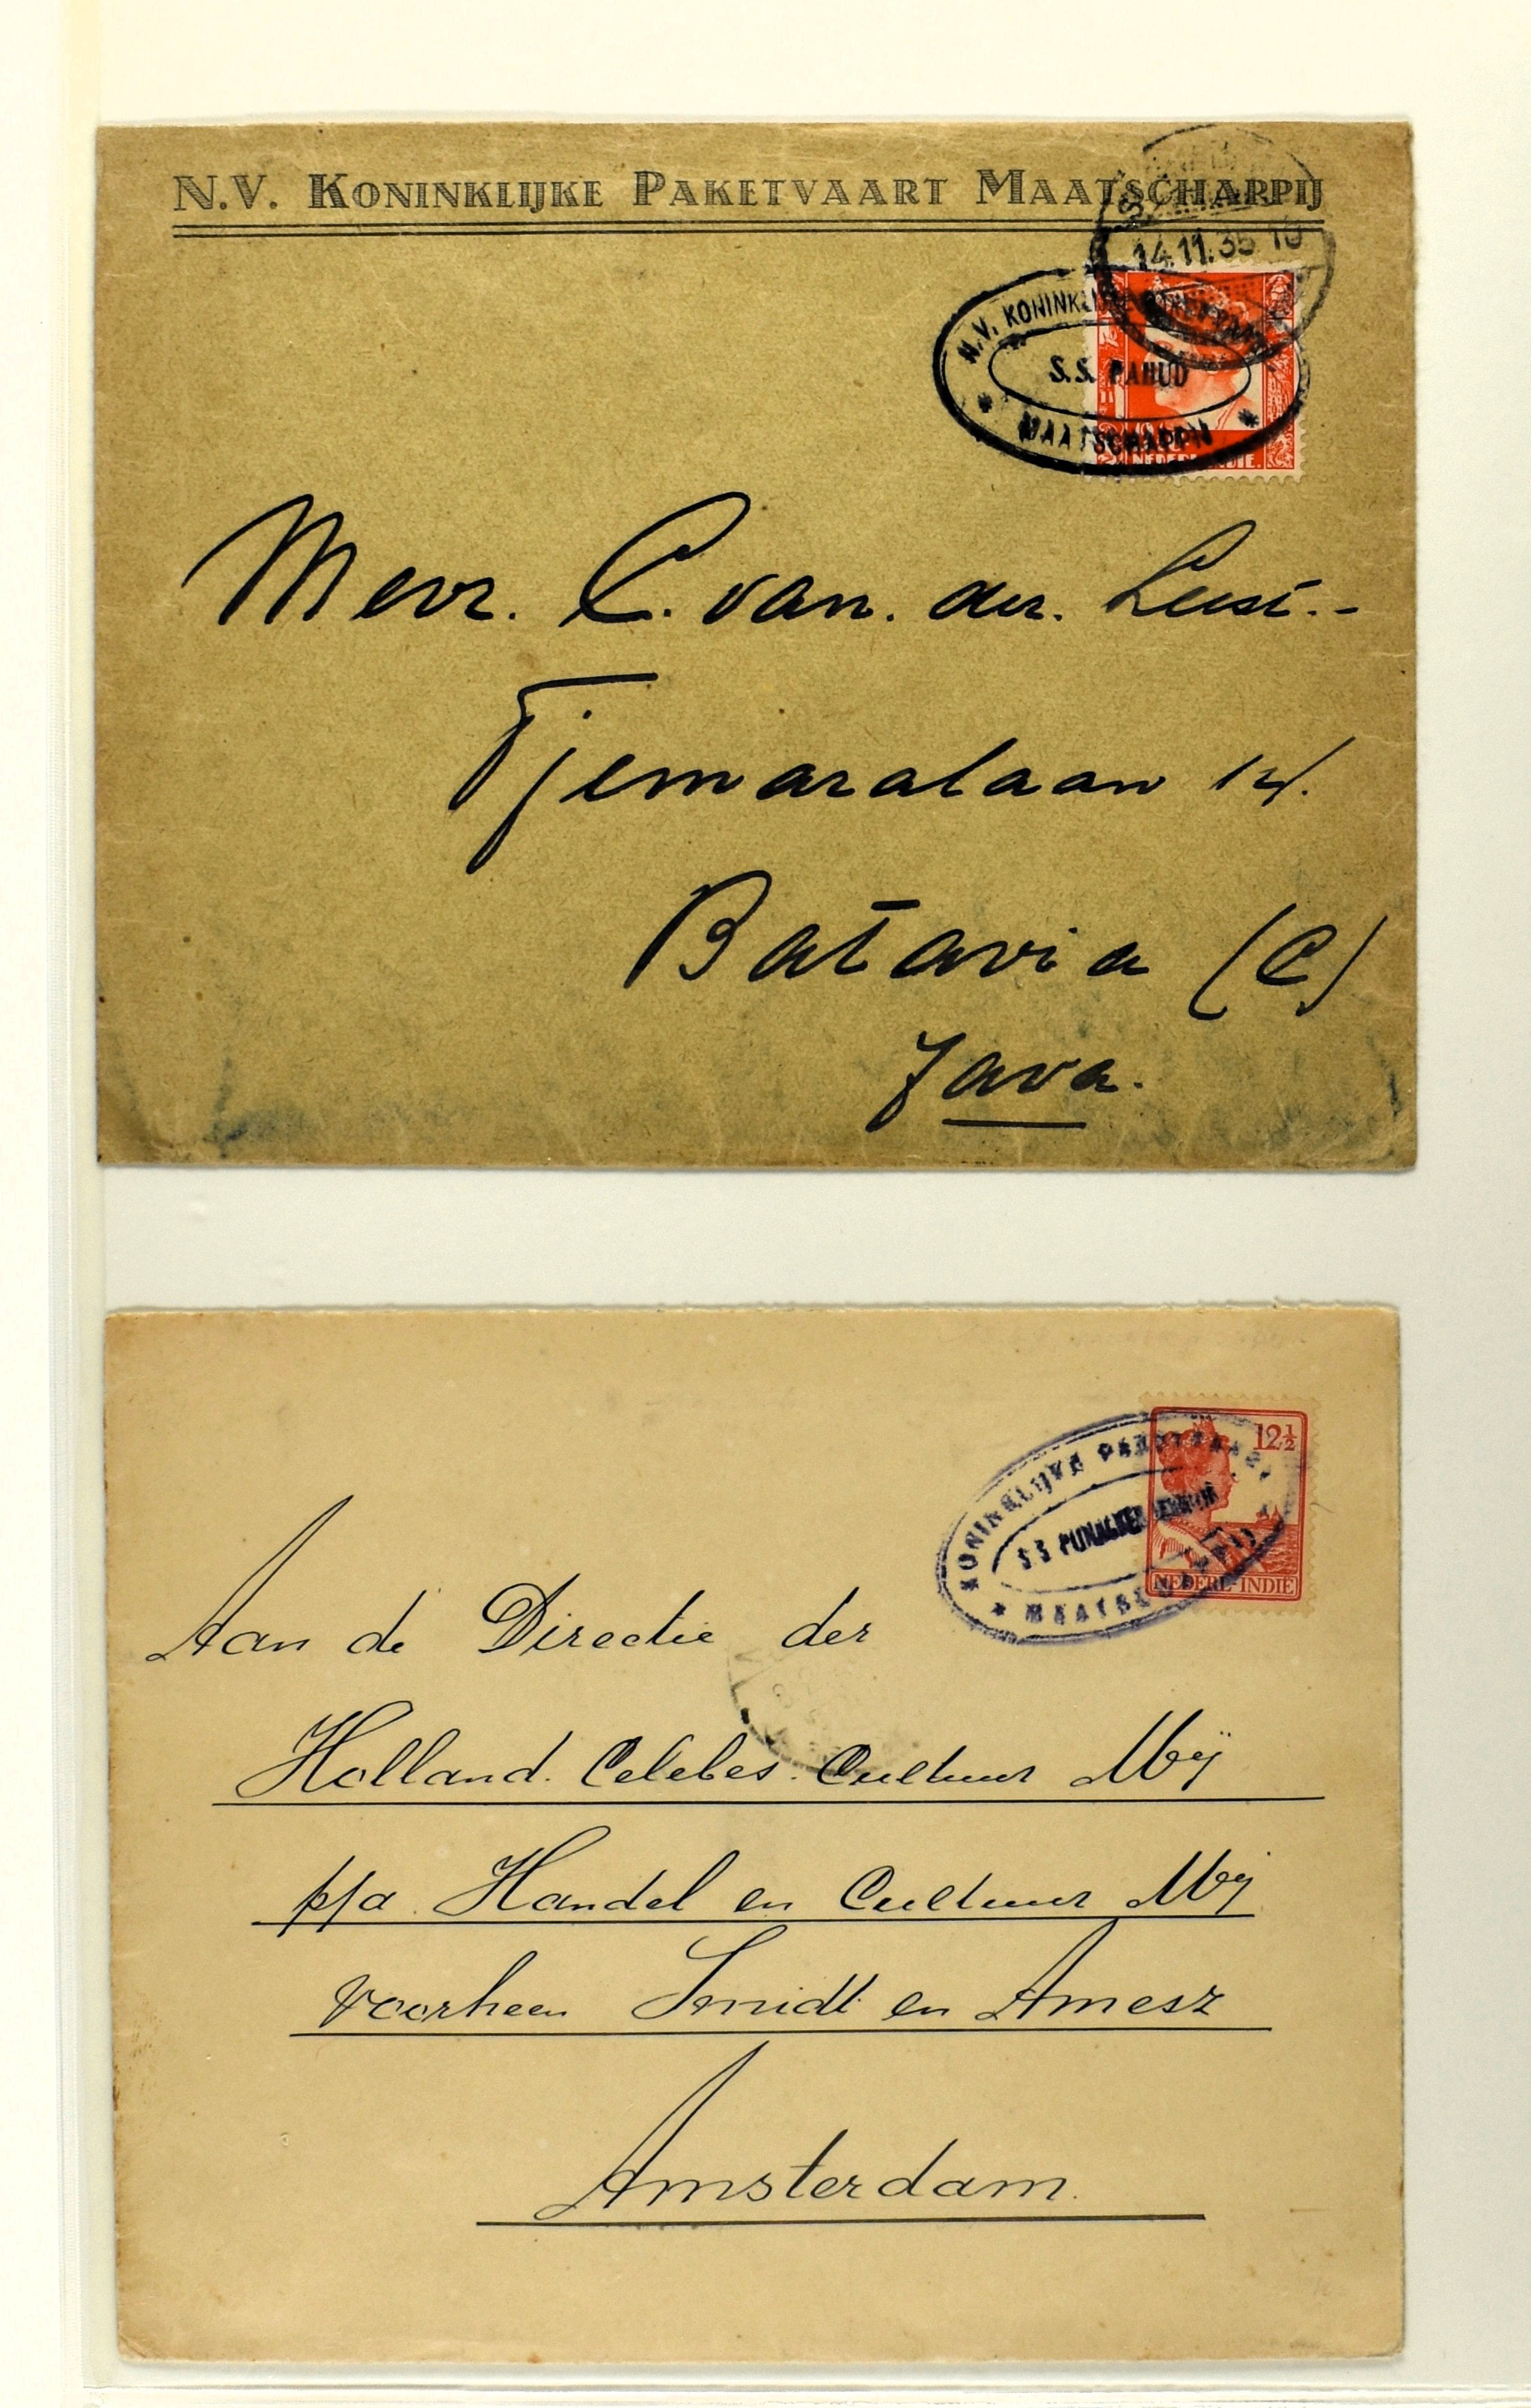 N.V. KONINKLIJKE PAKETVAART MAATSCHAPPIJ
14.11.35
N.V. KONINKLIJKE PAKETVAART
S.S. PAHUD
MAATSCHAPPIJ
NEDERL. INDIE.
Mevr. C. van. der.
Tjemaralaan 14.
Batavia (C)
Java.
12½
KONINKLIJKE PAKETVAART
S S
MAATSCHAPPIJ
NEDERL-INDIE
Aan de Directie der
Holland. Celebes. Cultuur Mij
p/a Handel en Cultuur Mij
voorheen Smidt en Amesz
Amsterdam.